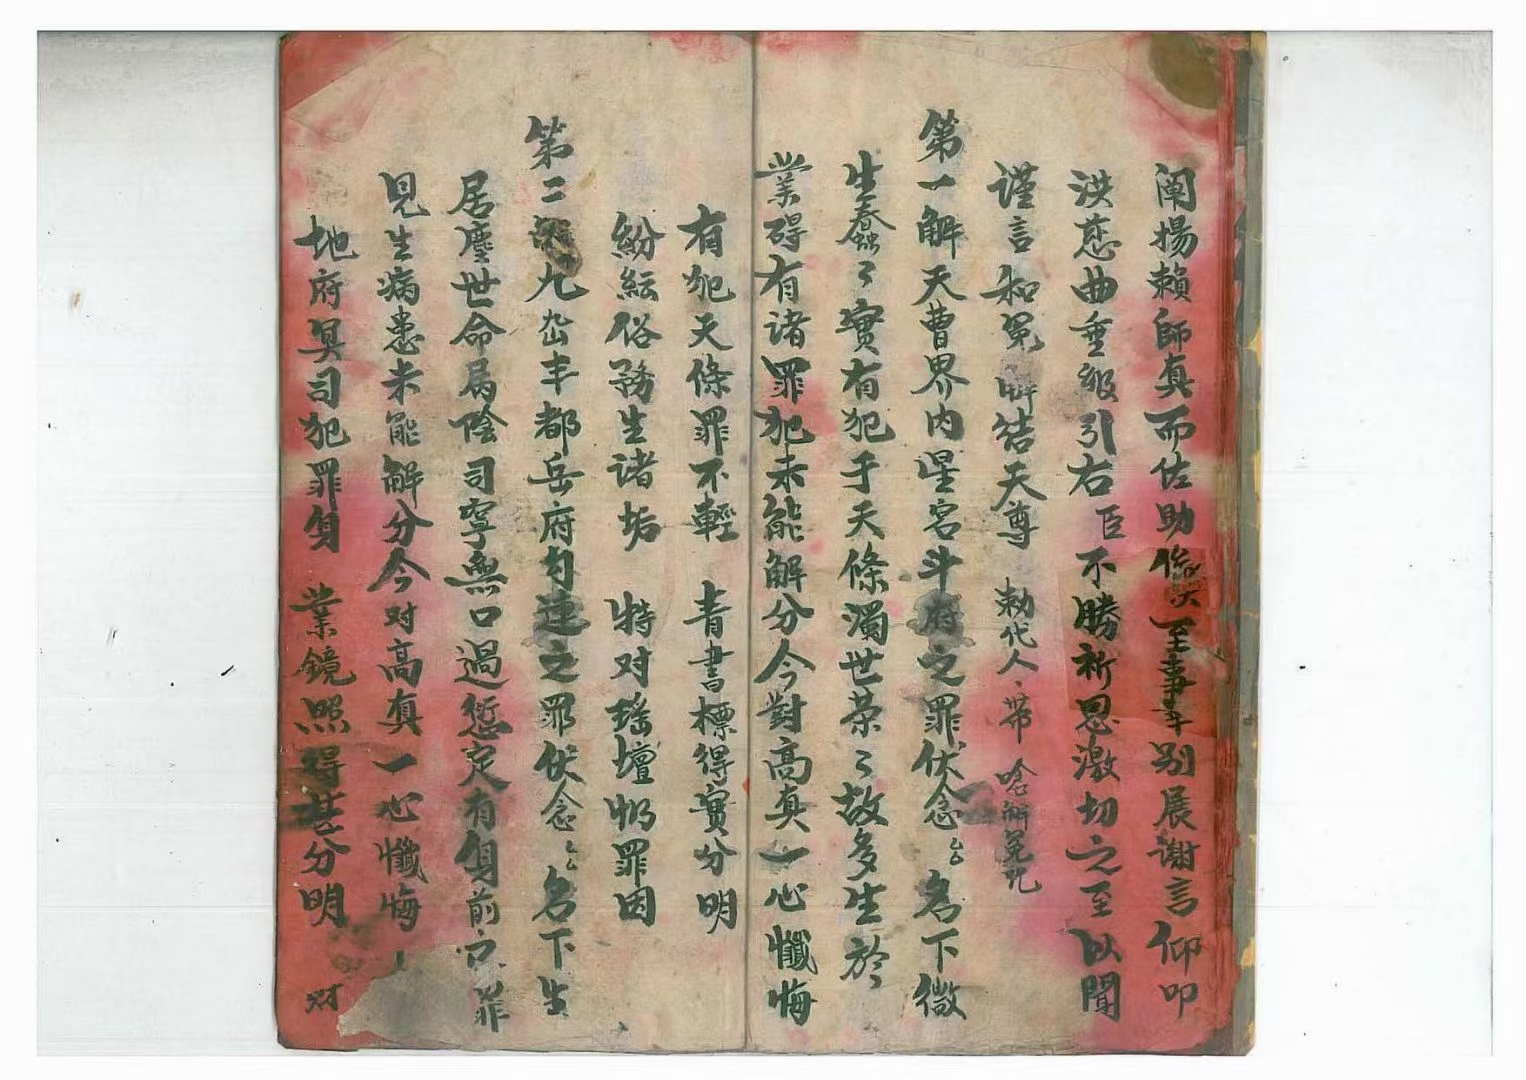 阐揚賴師真而佐助 至事畢别展謝言仰叩
洪慈曲垂 引右臣不勝祈恩激切之至以聞
謹言和冤解结天尊 勅代人、帶 唸解冤記
第一解天曹界内星宫斗府之罪伏念 名下微
生蠢〻實有犯于天條濁世荣〻故多生於
業碍有诸罪犯未能解分今對高真一心懺悔
有犯天條罪不輕 青書標得實分明
紛紜俗務生诸垢 特对瑶壇忏罪因
第二 九 丰都岳府勾連之罪伏念 名下生
居塵世命属陰司寧無口過愆定有身前 罪
見生病患未能解分今对高真一心懺悔
地府冥司犯罪身 業鏡照得甚分明 对